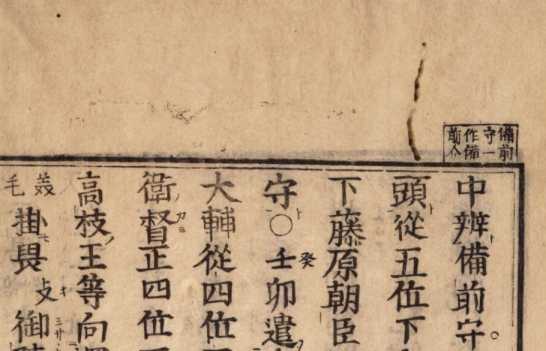 備前
守一
作備
前介
中辨備前守
頭從五位下
下藤原朝臣
守○壬卯遣
癸
大輔從四位
衞督正四位
高枝王等向
掛畏
御